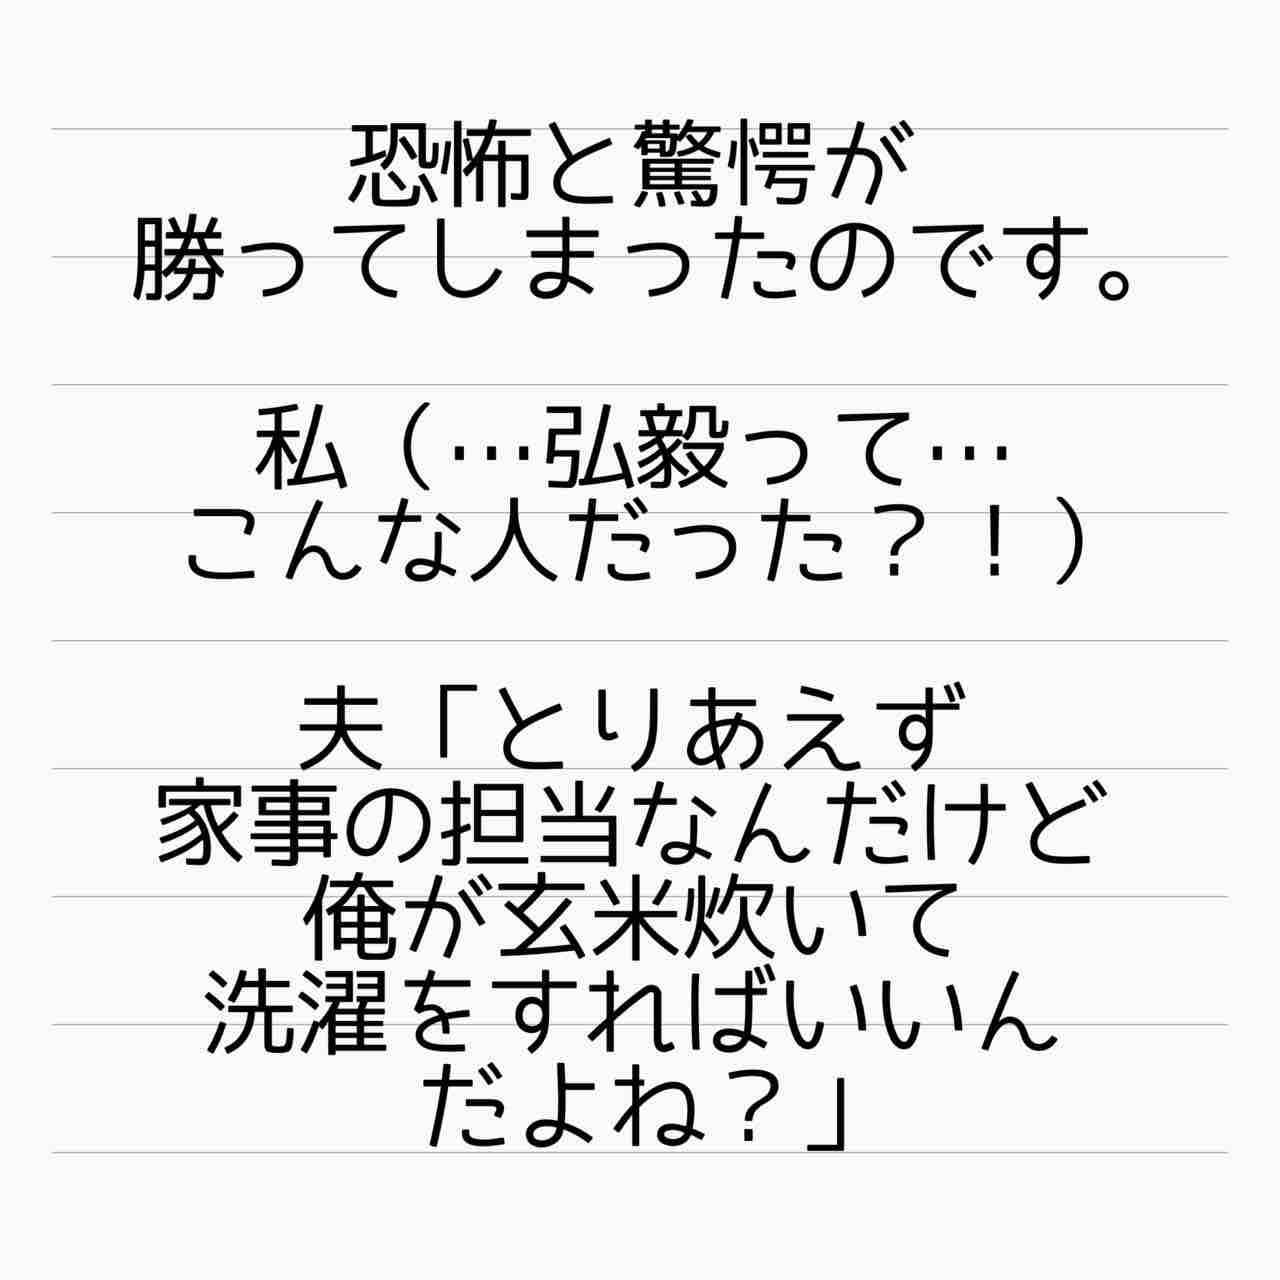 恐怖と驚愕が
勝ってしまったのです。
私（…弘毅って…
こんな人だった？！）
夫「とりあえず
家事の担当なんだけど
俺が玄米炊いて
洗濯をすればいいん
だよね？」